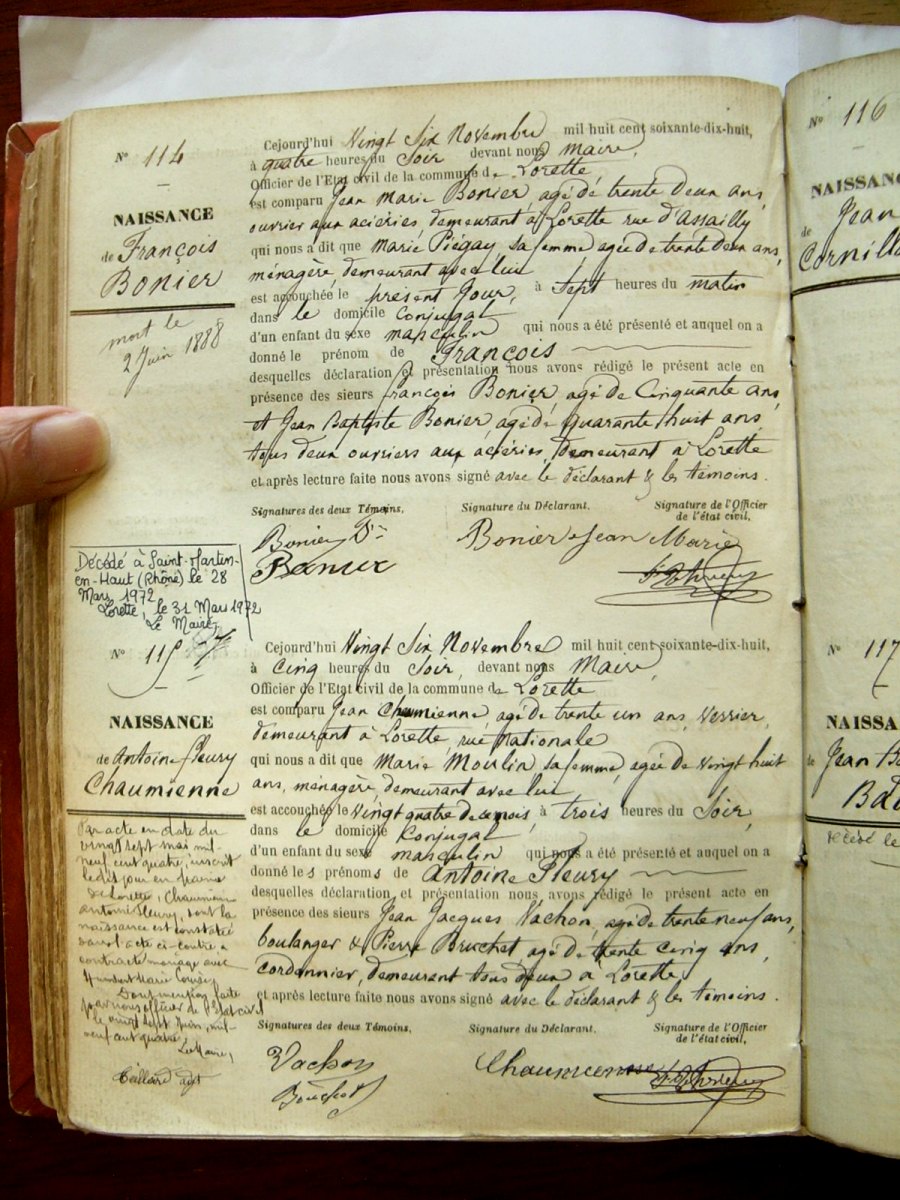 Nº 114
NAISSANCE
de François
Bonier
mort le
2 Juin 1888
Cejourd'hui Vingt Six Novembre mil huit cent soixante-dix-huit,
à quatre heures du Soir devant nous Maire,
Officier de l'Etat civil de la commune de Lorette
est comparu Jean Marie Bonier, agé de trente deux ans,
ouvrier aux aciéries, demeurant à Lorette rue d'Assailly
qui nous a dit que Marie Piégay sa femme agée de trente deux ans,
ménagère, demeurant avec lui
est accouchée le présent jour, à Sept heures du matin
dans le domicile Conjugal
d'un enfant du sexe masculin qui nous a été présenté et auquel on a
donné le prénom de François
desquelles déclaration et présentation nous avons rédigé le présent acte en
présence des sieurs françois Bonier, agé de Cinquante ans
et Jean Baptiste Bonier, agé de quarante huit ans,
tous deux ouvriers aux aciéries, demeurant à Lorette
et après lecture faite nous avons signé avec le déclarant & les témoins.
Signatures des deux Témoins,
Signature du Déclarant.
Signature de l'Officier
de l'état civil,
Bonier
Bonier Jean Marie
Décédé à Saint-Martin-
en-Haut (Rhône) le 28
Mars 1972
Lorette, le 31 Mars 1972
Le Maire,
Nº 115
NAISSANCE
de Antoine fleury
Chaumienne
Cejourd'hui Vingt Six Novembre mil huit cent soixante-dix-huit,
à Cinq heures du Soir, devant nous Maire,
Officier de l'Etat civil de la commune de Lorette
est comparu Jean Chaumienne, agé de trente un ans, Verrier,
demeurant à Lorette, rue Nationale
qui nous a dit que Marie Moulin sa femme, agée de vingt huit
ans, ménagère, demeurant avec lui
est accouchée le vingt quatre de ce mois, à trois heures du Soir,
dans le domicile Conjugal
d'un enfant du sexe masculin qui nous a été présenté et auquel on a
donné les prénoms de Antoine Fleury
desquelles déclaration et présentation nous avons rédigé le présent acte en
présence des sieurs Jean Jacques Vachon, agé de trente neuf ans,
boulanger & Pierre Bruchet agé de trente cinq ans,
cordonnier, demeurant tous deux à Lorette
et après lecture faite nous avons signé avec le déclarant & les témoins.
Signatures des deux Témoins,
Signature du Déclarant.
Signature de l'Officier
de l'état civil,
Vachon
Chaumienne
Par acte en date du
vingt sept mai mil
neuf cent quatre, inscrit
ledit jour en mairie
de Lorette, Chaumienne
antoine fleury, dont la
naissance est constatée
dans l'acte ci-contre a
contracté mariage avec
Marie
Dont mention faite
par nous officier de l'Etat civil
le vingt sept Juin, mil
neuf cent quatre,
Le Maire,
Nº 116
NAISSANC
de Jean
Cornill
Nº 117
NAISSA
de Jean Ba
décédé le